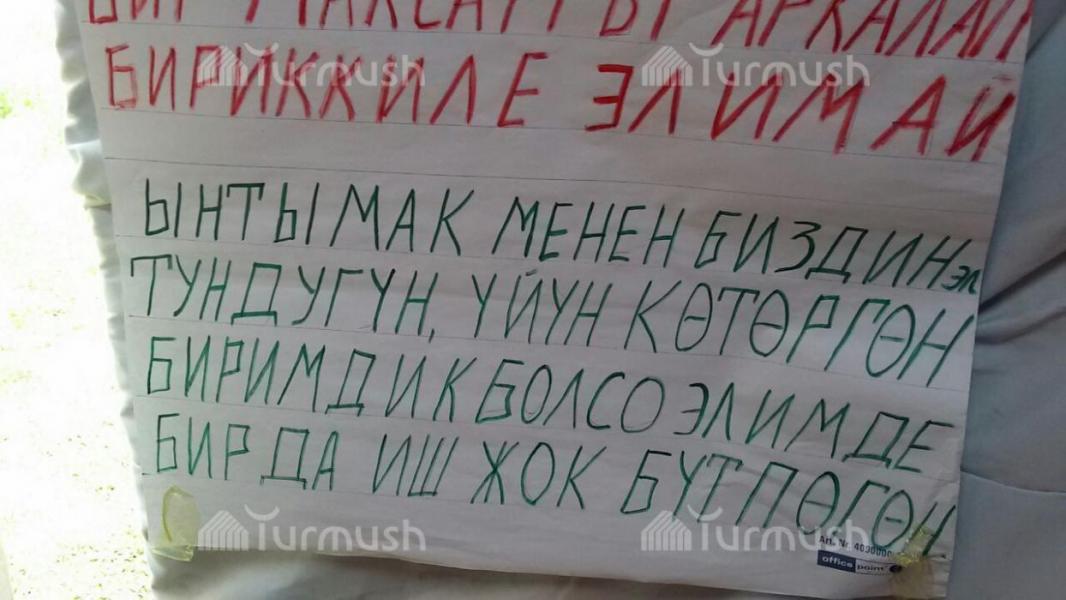 БИР МАКСАТТЫ АРКАЛАП
БИРИККИЛЕ ЭЛИМ АЙ
ЫНТЫМАК МЕНЕН БИЗДИН ЭЛ
ТУНДУГҮН, ҮЙҮН КӨТӨРГӨН
БИРИМДИК БОЛСО ЭЛИМДЕ
БИР ДА ИШ ЖОК БҮТПӨГӨН
Turmush
Turmush
Turmush
Turmush
Art. Nr.
office point